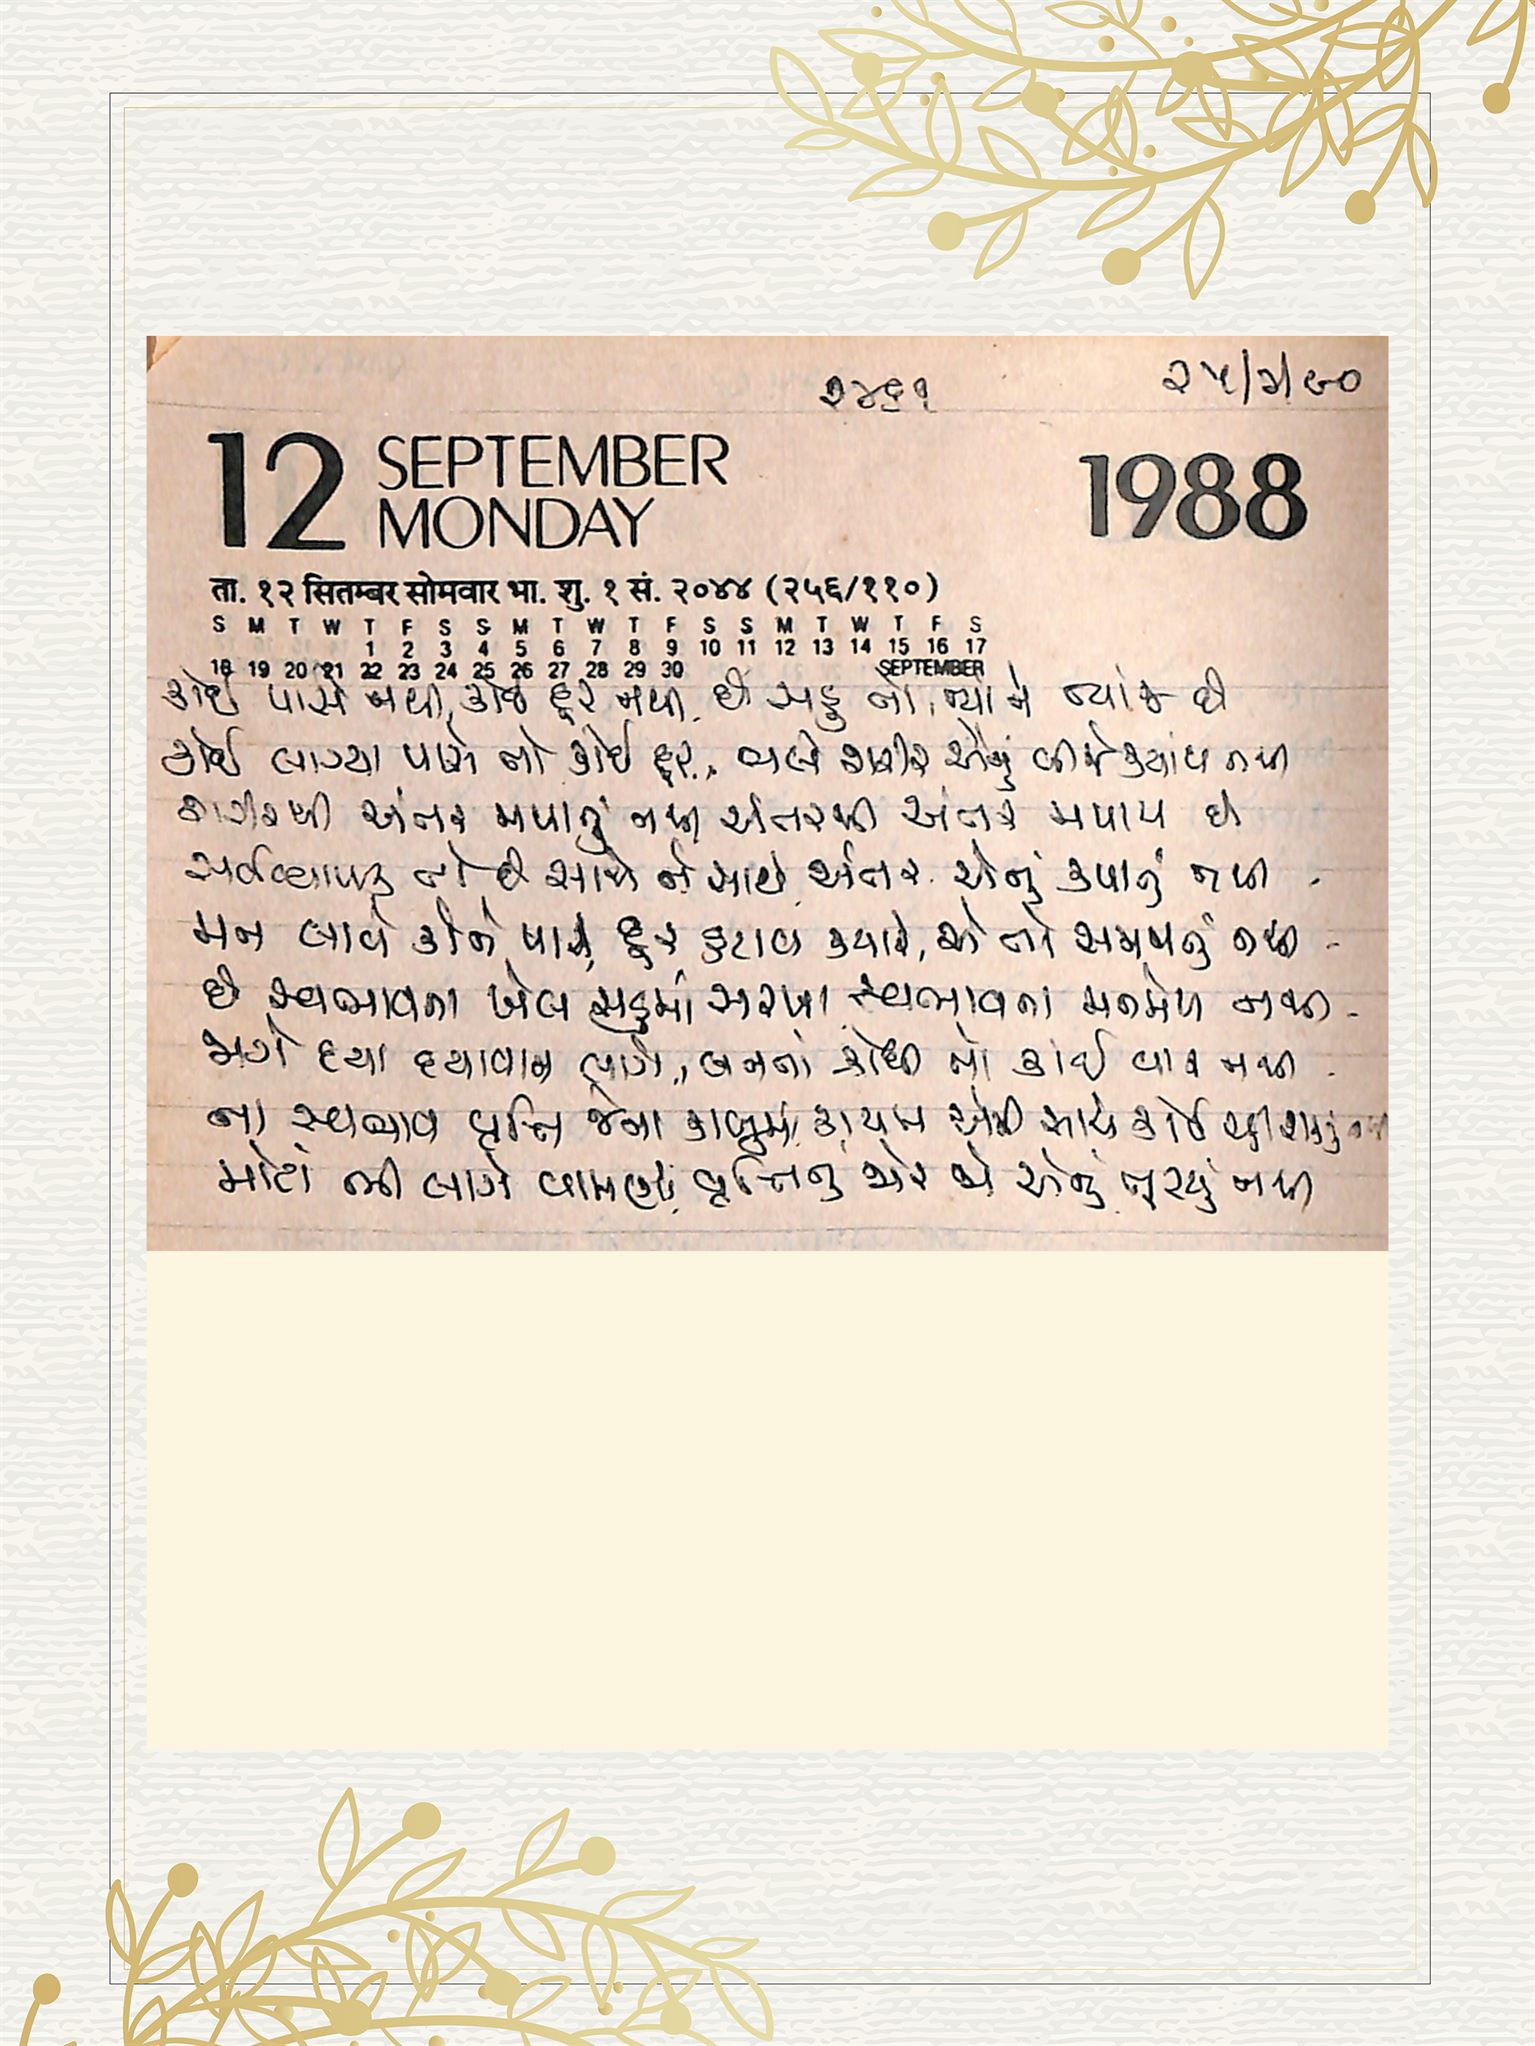 ૨૪૬૧ ૨૫/૩/૯૦
12 SEPTEMBER 1988
MONDAY
ता. १२ सितम्बर सोमवार भा. शु. १ सं. २०४४ (२५६/११०)
S M T W T F S S M T W T F S S M T W T F S
1 2 3 4 5 6 7 8 9 10 11 12 13 14 15 16 17
18 19 20 21 22 23 24 25 26 27 28 29 30 SEPTEMBER
કોઈ પાસે નથી, કોઈ દૂર નથી, છે સહુ તો, ત્યાં ને ત્યાં જ છે
કોઈ લાગ્યા પાસે તો કોઈ દૂર, બાકી શરીર એનું બીજે ક્યાંય નથી
શરીરથી અંતર મપાતું નથી અંતરથી અંતર મપાય છે
સર્વવ્યાપક તો છે સાથે ને સાથે, અંતર એનું કપાતું નથી
મન લાવે કોને પાસે, દૂર હટાવે ક્યારે, એ તો સમજાતું નથી
છે સ્વભાવના ખેલ સહુમાં સરખા સ્વભાવના મનમેળ નથી
જાગે દયા દયાવાન લાગે, બનતાં ક્રોધી તો કાંઈ વાર નથી
ના સ્વભાવ વૃત્તિ જેના કાબૂમાં, કાયમ એની સાથે કોઈ રહી શકતું નથી
મોટાં ભી લાગે વામણાં, વૃત્તિનું ઝેર જો એનું ઊતર્યું નથી